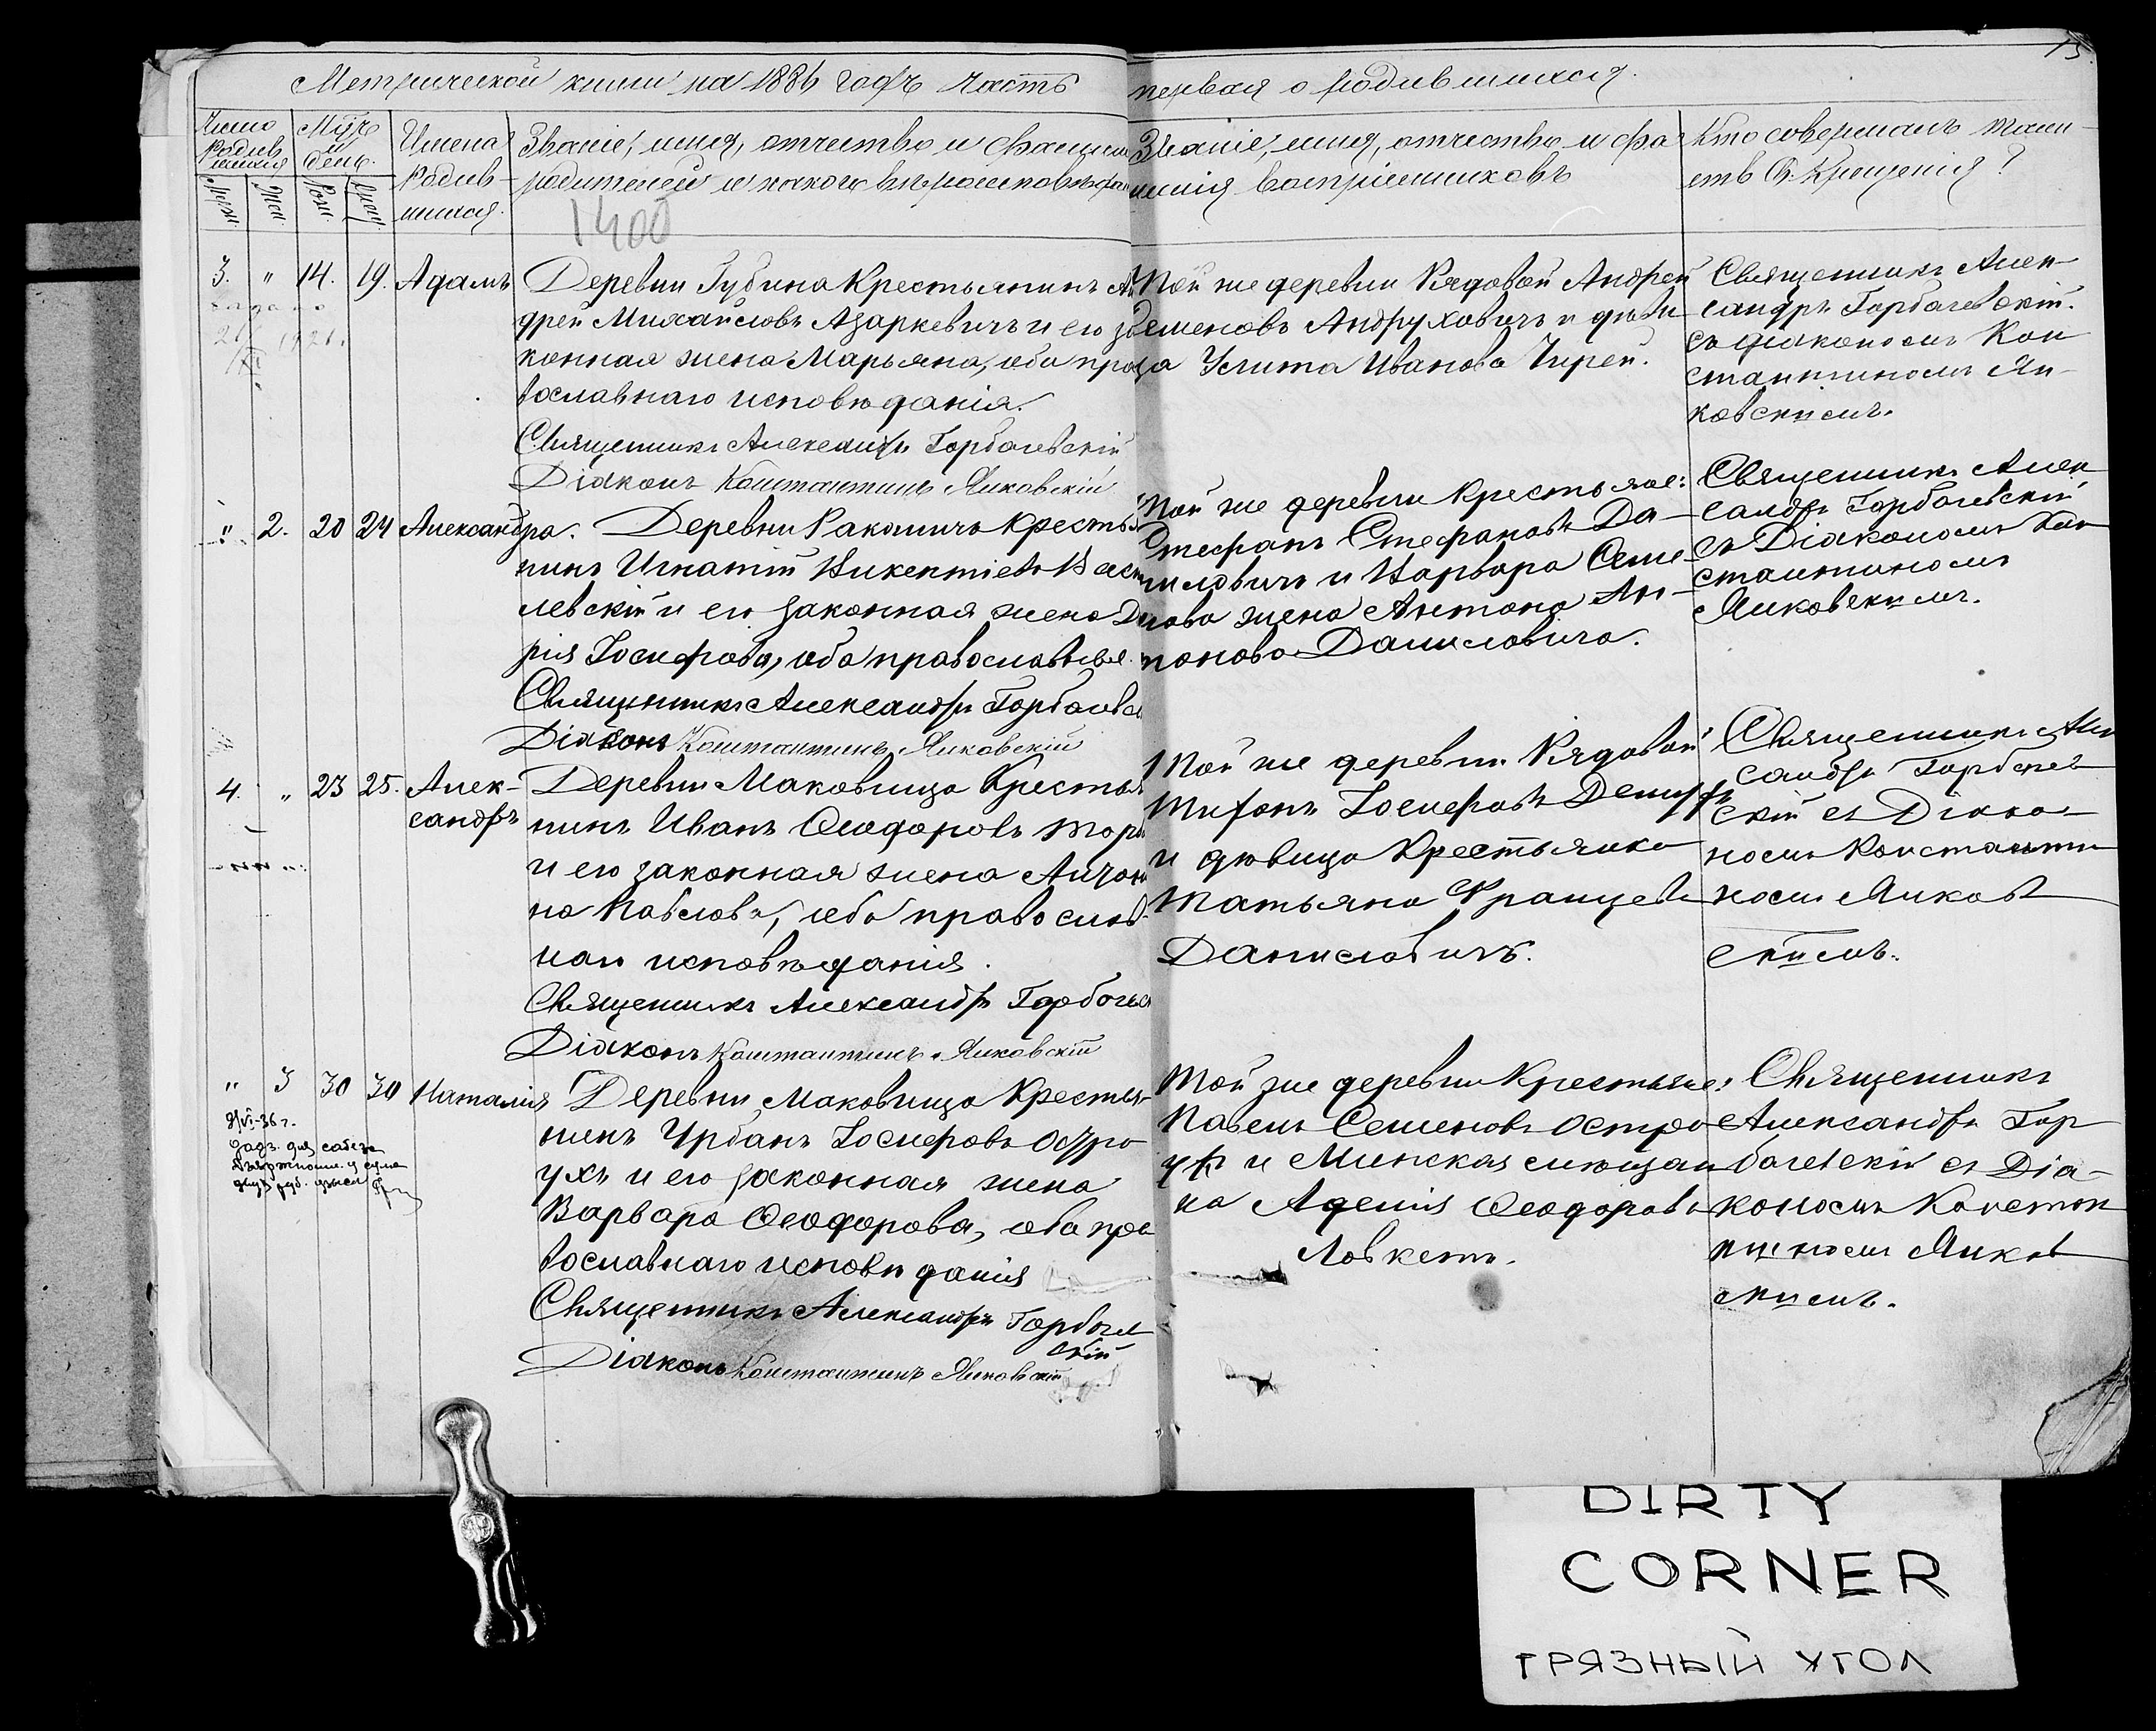 15.
Метрической книги на 1886 годъ часть первая о родившихся.
Число родившихся
Муж.
Жен.
Мѣс. и день.
Рож.
Крещ.
Имена родив-
шихся.
Званіе, имя, отчество и фамилія
родителей и какого вѣроисповѣдан
1400
Званіе, имя, отчество и фа
милія воспріемниковъ
Кто совершалъ таин-
ств. Св. Крещенія?
3. " 14. 19. Адамъ
21/XI 1921.
Деревни Губина Крестьянинъ Ан
дрей Михайловъ Азаркевичъ и его за
конная жена Марьяна, оба пра
вославнаго исповѣданія.
Священникъ Александръ Горбачевскій
Діаконъ Константинъ Янковскій
Той же деревни Рядовой Андрей
Семеновъ Андруховичъ и дѣви
ца Улита Иванова Чирей.
Священникъ Алек-
сандръ Горбачевскій.
съ діакономъ Кон
стантиномъ Ян-
ковскимъ.
" 2. 20 24 Александра.
Деревни Ракошичъ Кресть
нинъ Игнатій Викентіевъ Васи
левскій и его законная жена Да
рія Іосифова, оба православные.
Священникъ Александръ Горбачевс
Діаконъ Константинъ Янковскій
Той же деревни Крестьяне:
Стефанъ Стефановъ Да-
ниловичъ и Варвара Семе-
нова жена Антона Ан-
тонова Даниловича.
Священникъ Алек
сандръ Горбачевскій
съ Діакономъ Кон
стантиномъ
Янковскимъ.
4. " 23 25. Алек-
сандръ
Деревни Маковища Крестья
нинъ Иванъ Ѳеодоровъ
и его законная жена Антони
на Павлова, оба православ-
наго исповѣданія.
Священникъ Александръ Горбачевс
Діаконъ Константинъ Янковскій
Той же деревни Рядовой
Тифонъ Іосифовъ
и дѣвица Крестьянка
Татьяна Францева
Даниловичъ.
Священникъ Алек
сандръ Горбачев
скій съ Діако-
номъ Константи
номъ Янков
скимъ.
" 3 30 30 Наталія
VI-36 г.
Деревни Маковища Крестья-
нинъ Урбанъ Іосифовъ Остро
ухъ и его законная жена
Варвара Ѳеодорова, оба пра
вославнаго исповѣданія
Священникъ Александръ Горбачев
скій
Діаконъ Константинъ Янковскій
Той же деревни Крестьяне:
Павелъ Семеновъ Остро
ухъ и Минская мѣщан
ка Ѳеодорова
Ловкетъ.
Священникъ
Александръ Гор
бачевскій съ Діа-
кономъ Констан
тиномъ Янков
скимъ.
DIRTY
CORNER
ГРЯЗНЫЙ УГОЛ